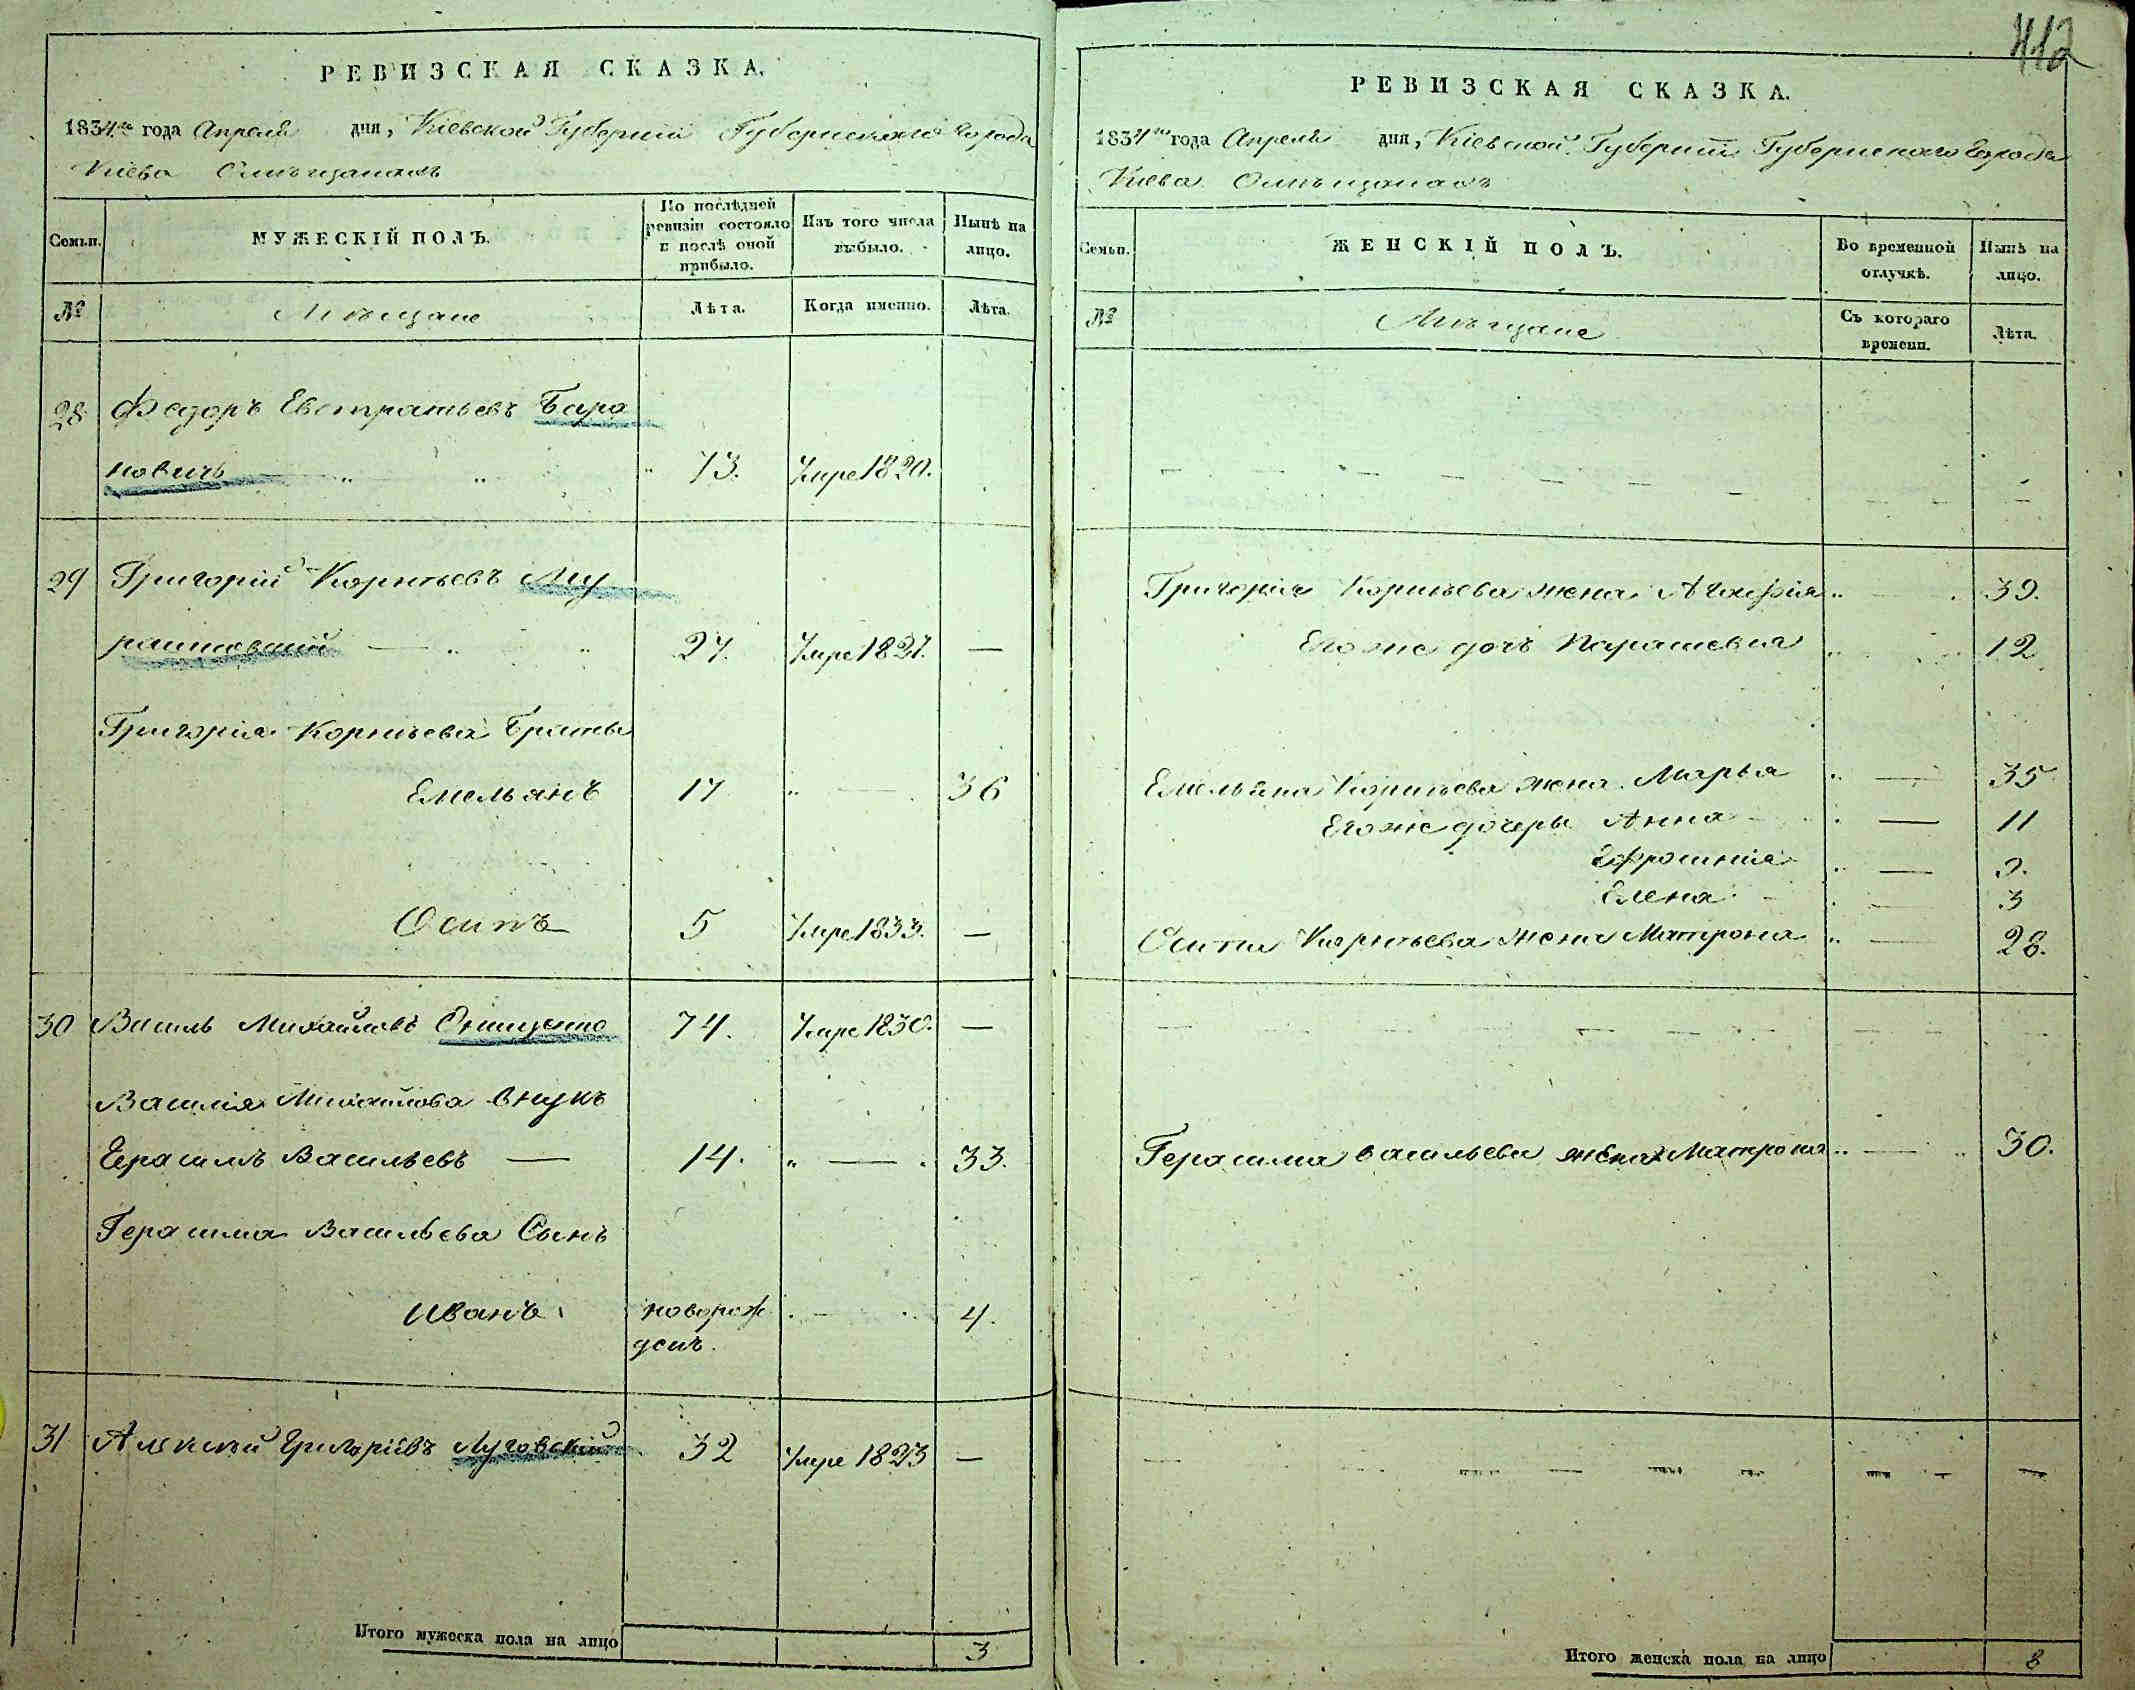 РЕВИЗСКАЯ СКАЗКА.
1834го года Апреля дня, Кіевской Губерніи Губернскаго города
Кіева О мѣщанахъ
Семьи.
МУЖЕСКІЙ ПОЛЪ.
По послѣдней ревизіи состояло и послѣ оной прибыло.
Изъ того числа выбыло.
Нынѣ на лицо.
№
Мѣщане
Лѣта.
Когда именно.
Лѣта.
28 Федоръ Евстратьевъ Бара
новичъ 73. Умре 1820.
29 Григорій Корнѣевъ Му
27. Умре 1821. —
Григорія Корнѣева Братья
Емельянъ 17 " — 36
Осипъ 5 Умре 1833. —
30 Василь Михайловъ Онищенко 74. Умре 1830. —
Василія Михайлова внукъ
Герасимъ Васильевъ — 14. " — 33.
Герасима Васильева Сынъ
Иванъ новорож 4.
денъ.
31 Алексѣй Григорьевъ Луговскій 32 Умре 1823 —
Итого мужеска пола на лицо 3
412
РЕВИЗСКАЯ СКАЗКА.
1834го года Апреля дня, Кіевской Губерніи Губернскаго Города
Кіева О мѣщанахъ
Семьи.
ЖЕНСКІЙ ПОЛЪ.
Во временной отлучкѣ.
Нынѣ на лицо.
№
Мѣщане
Съ котораго времени.
Лѣта.
Григорія Корнѣева жена Агафія " — 39.
Его же дочь Парасковія " 12
Емельяна Корнѣева жена Марья " — 35
Его же дочеры Анна — 11
Ефросинія " — 9.
Елена 3
Осипа Корнѣева жена Матрона " — 28.
Герасима Васильева жена Матрона " — " 30.
Итого женска пола на лицо 8